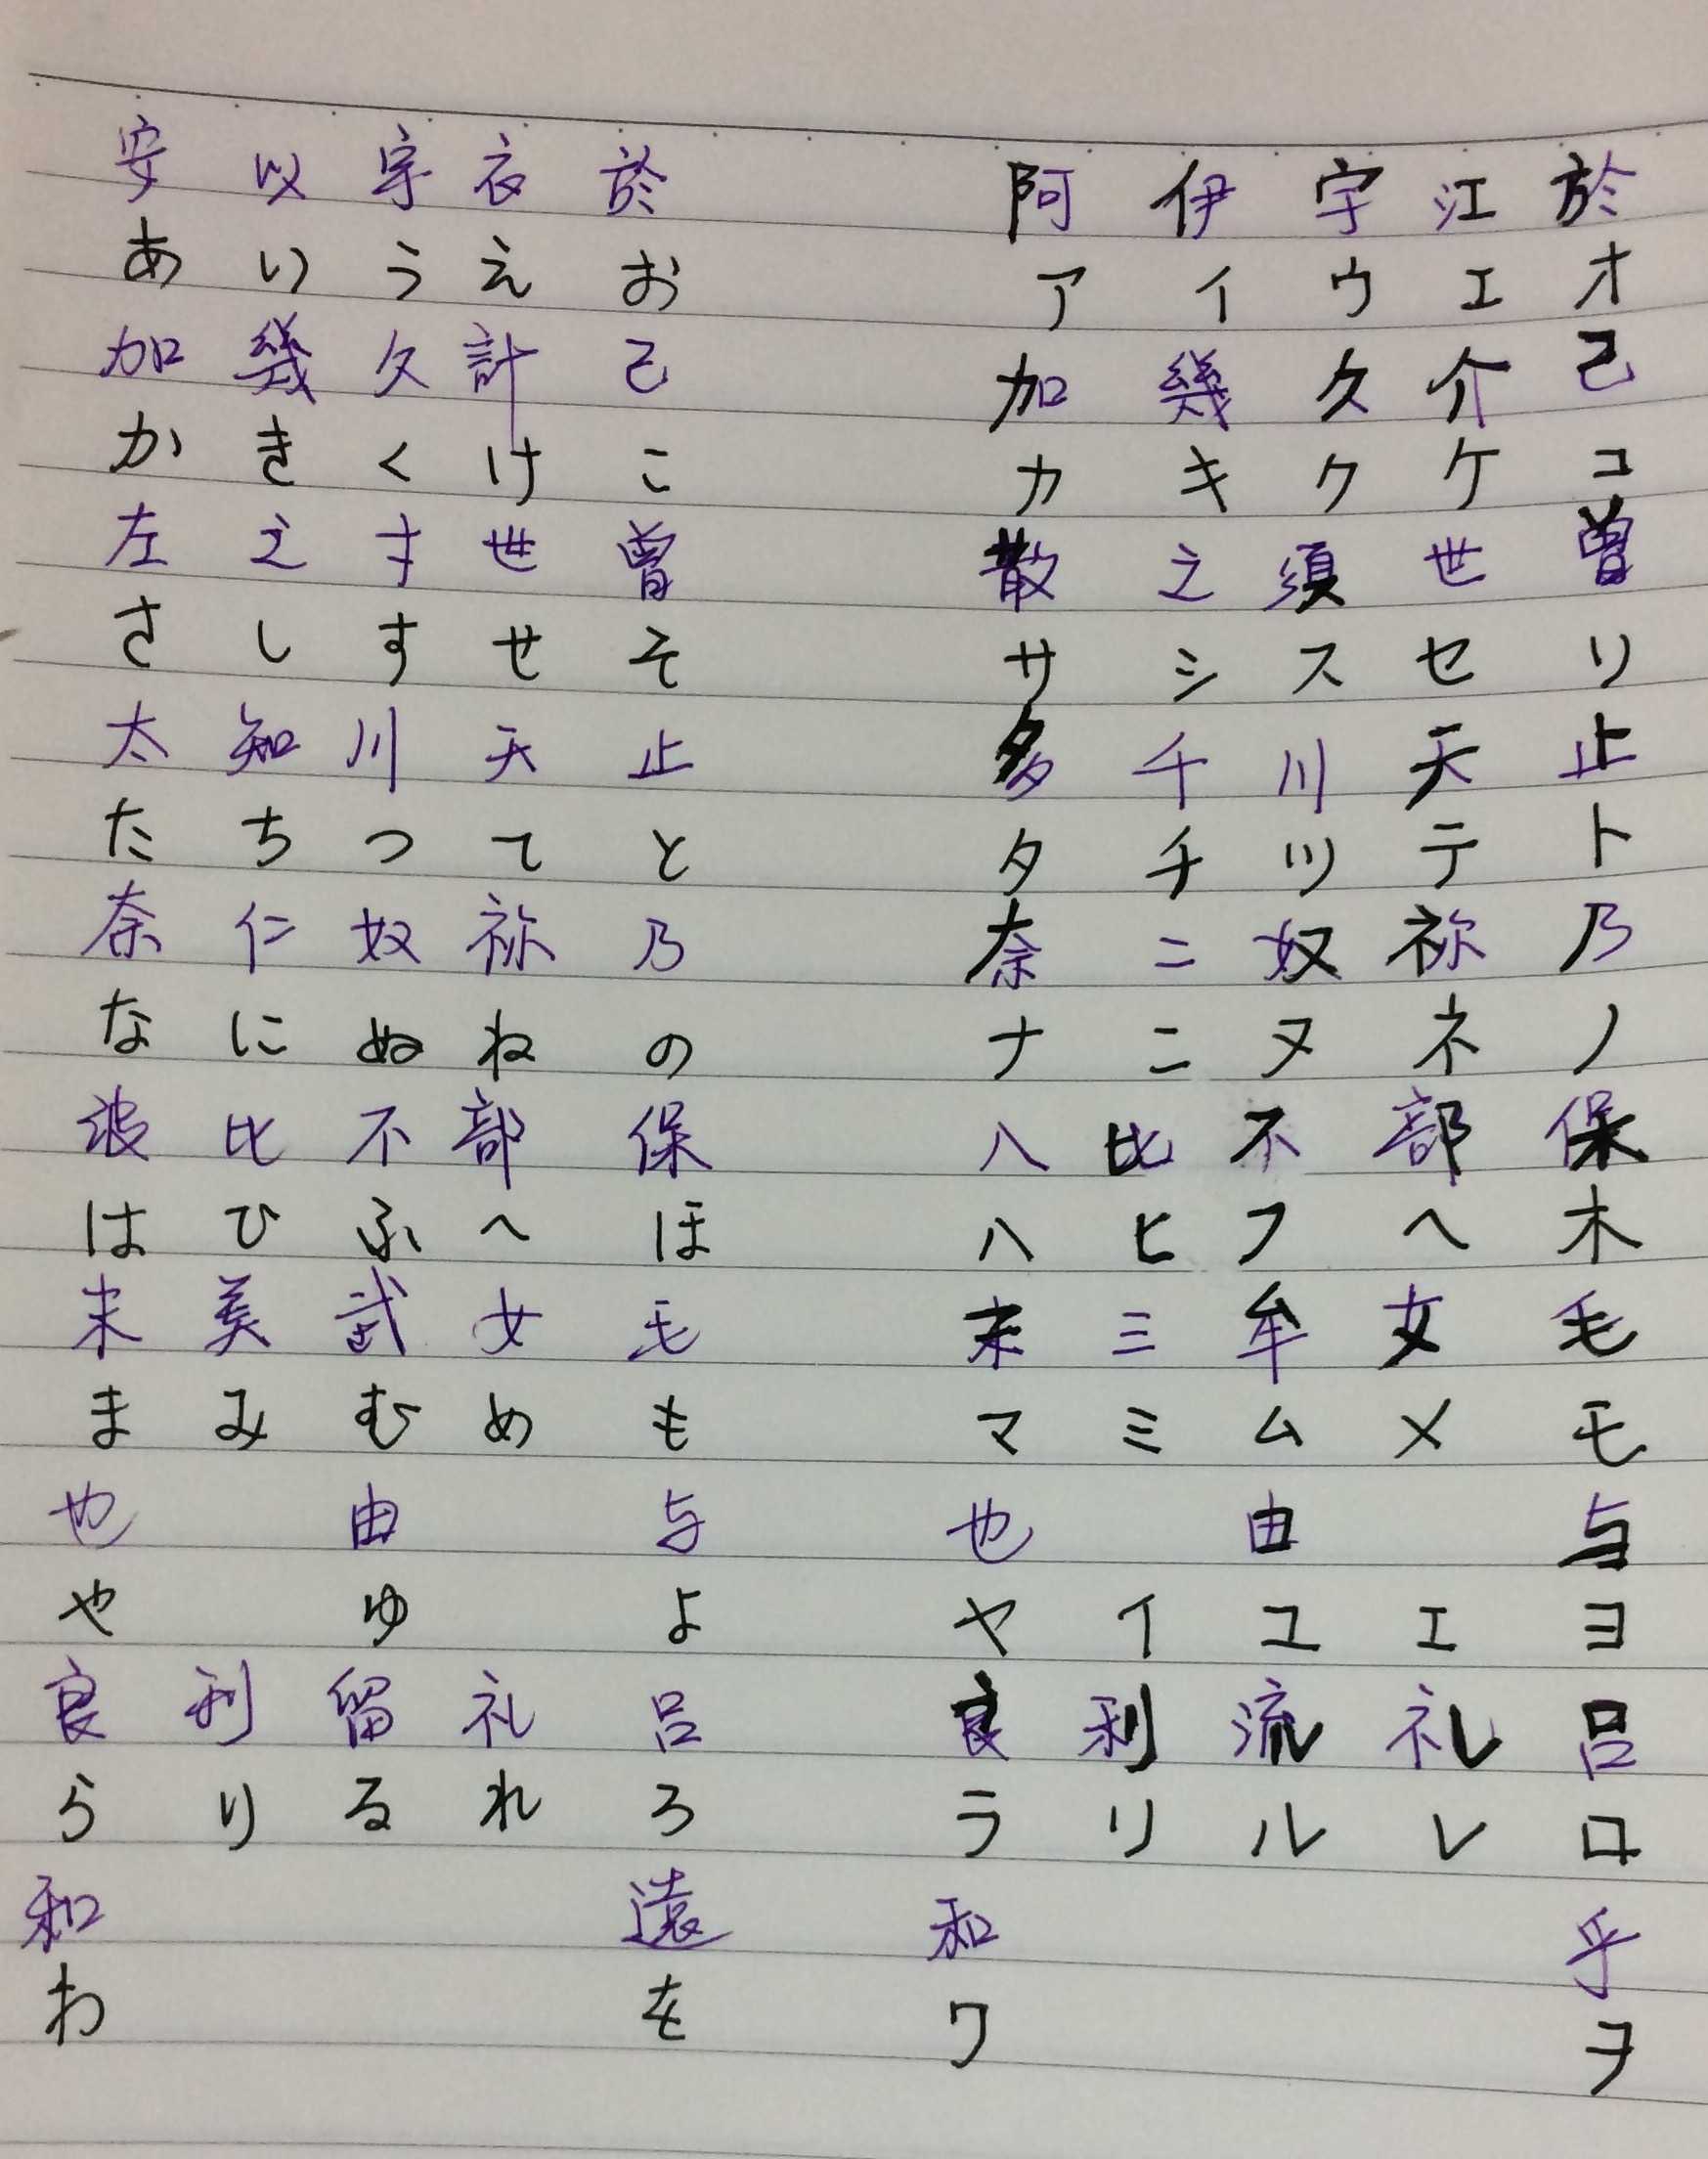 安 以 宇 衣 於 阿 伊 宇 江 於
あ い う え お ア イ ウ エ オ
加 幾 久 計 己 加 幾 久 介 己
か き く け こ カ キ ク ケ コ
左 之 寸 世 曽 散 之 須 世 曽
さ し す せ そ サ シ ス セ ソ
太 知 川 天 止 多 千 川 天 止
た ち つ て と タ チ ツ テ ト
奈 仁 奴 祢 乃 奈 二 奴 祢 乃
な に ぬ ね の ナ ニ ヌ ネ ノ
波 比 不 部 保 八 比 不 部 保
は ひ ふ へ ほ ハ ヒ フ ヘ 木
末 美 武 女 毛 末 三 牟 女 毛
ま み む め も マ ミ ム メ モ
也 由 与 也 由 与
や ゆ よ ヤ イ ユ エ ヨ
良 利 留 礼 呂 良 利 流 礼 呂
ら り る れ ろ ラ リ ル レ ロ
和 遠 和 乎
わ を ワ ヲ